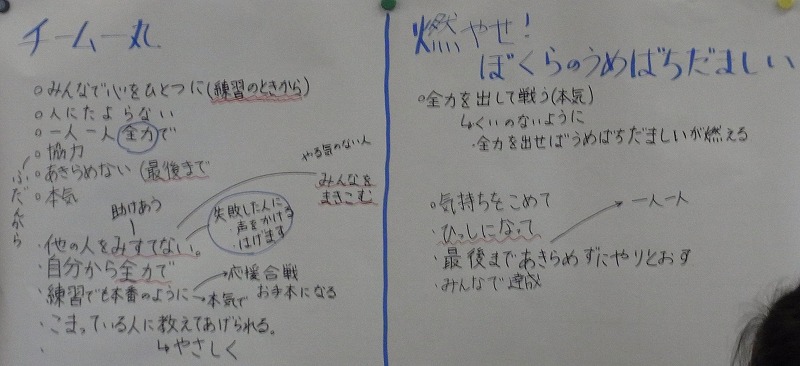 チーム一丸
○みんなで心をひとつに(練習のときから)
○人にたよらない
○一人一人全力で
○協力
○あきらめない(最後まで
○本気
ふだんから
やる気のない人
みんなを
まきこむ
助けあう
失敗した人に
・声をかける
・はげます
・他の人をみすてない。
・自分から全力で
・練習でも本番のように→本気で
→応援合戦
お手本になる
・こまっている人に教えてあげられる。
↳やさしく
・
燃やせ!
ぼくらのうめばちだましい
○全力を出して戦う(本気)
↳くいのないように
・全力を出せばうめばちだましいが燃える
○気持ちをこめて
・ひっしになって
→一人一人
・最後まであきらめずにやりとおす
・みんなで達成